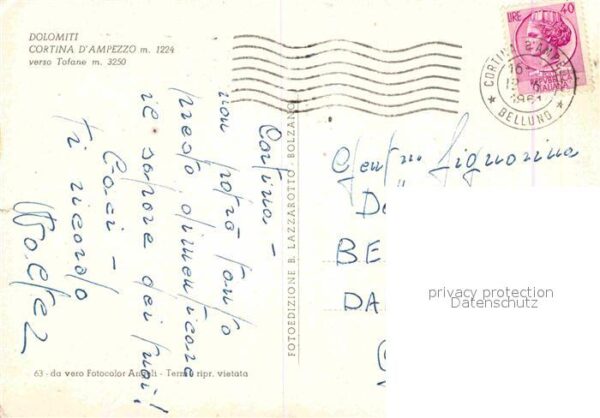 DOLOMITI
CORTINA D'AMPEZZO m. 1224
verso Tofane m. 3250
LIRE 40
REPUBBLICA
ITALIANA
CORTINA D'AMPEZZO
16-
1961
★ BELLUNO ★
Cortina -
non potrò tanto
presto dimenticare
il sapore dei tuoi!
Ciao! -
Ti ricordo
FOTOEDIZIONE B. LAZZAROTTO - BOLZANO
Gent.ma Signorina
D
BE
DA
privacy protection
Datenschutz
63 - da vero Fotocolor Angeli - Term. ripr. vietata